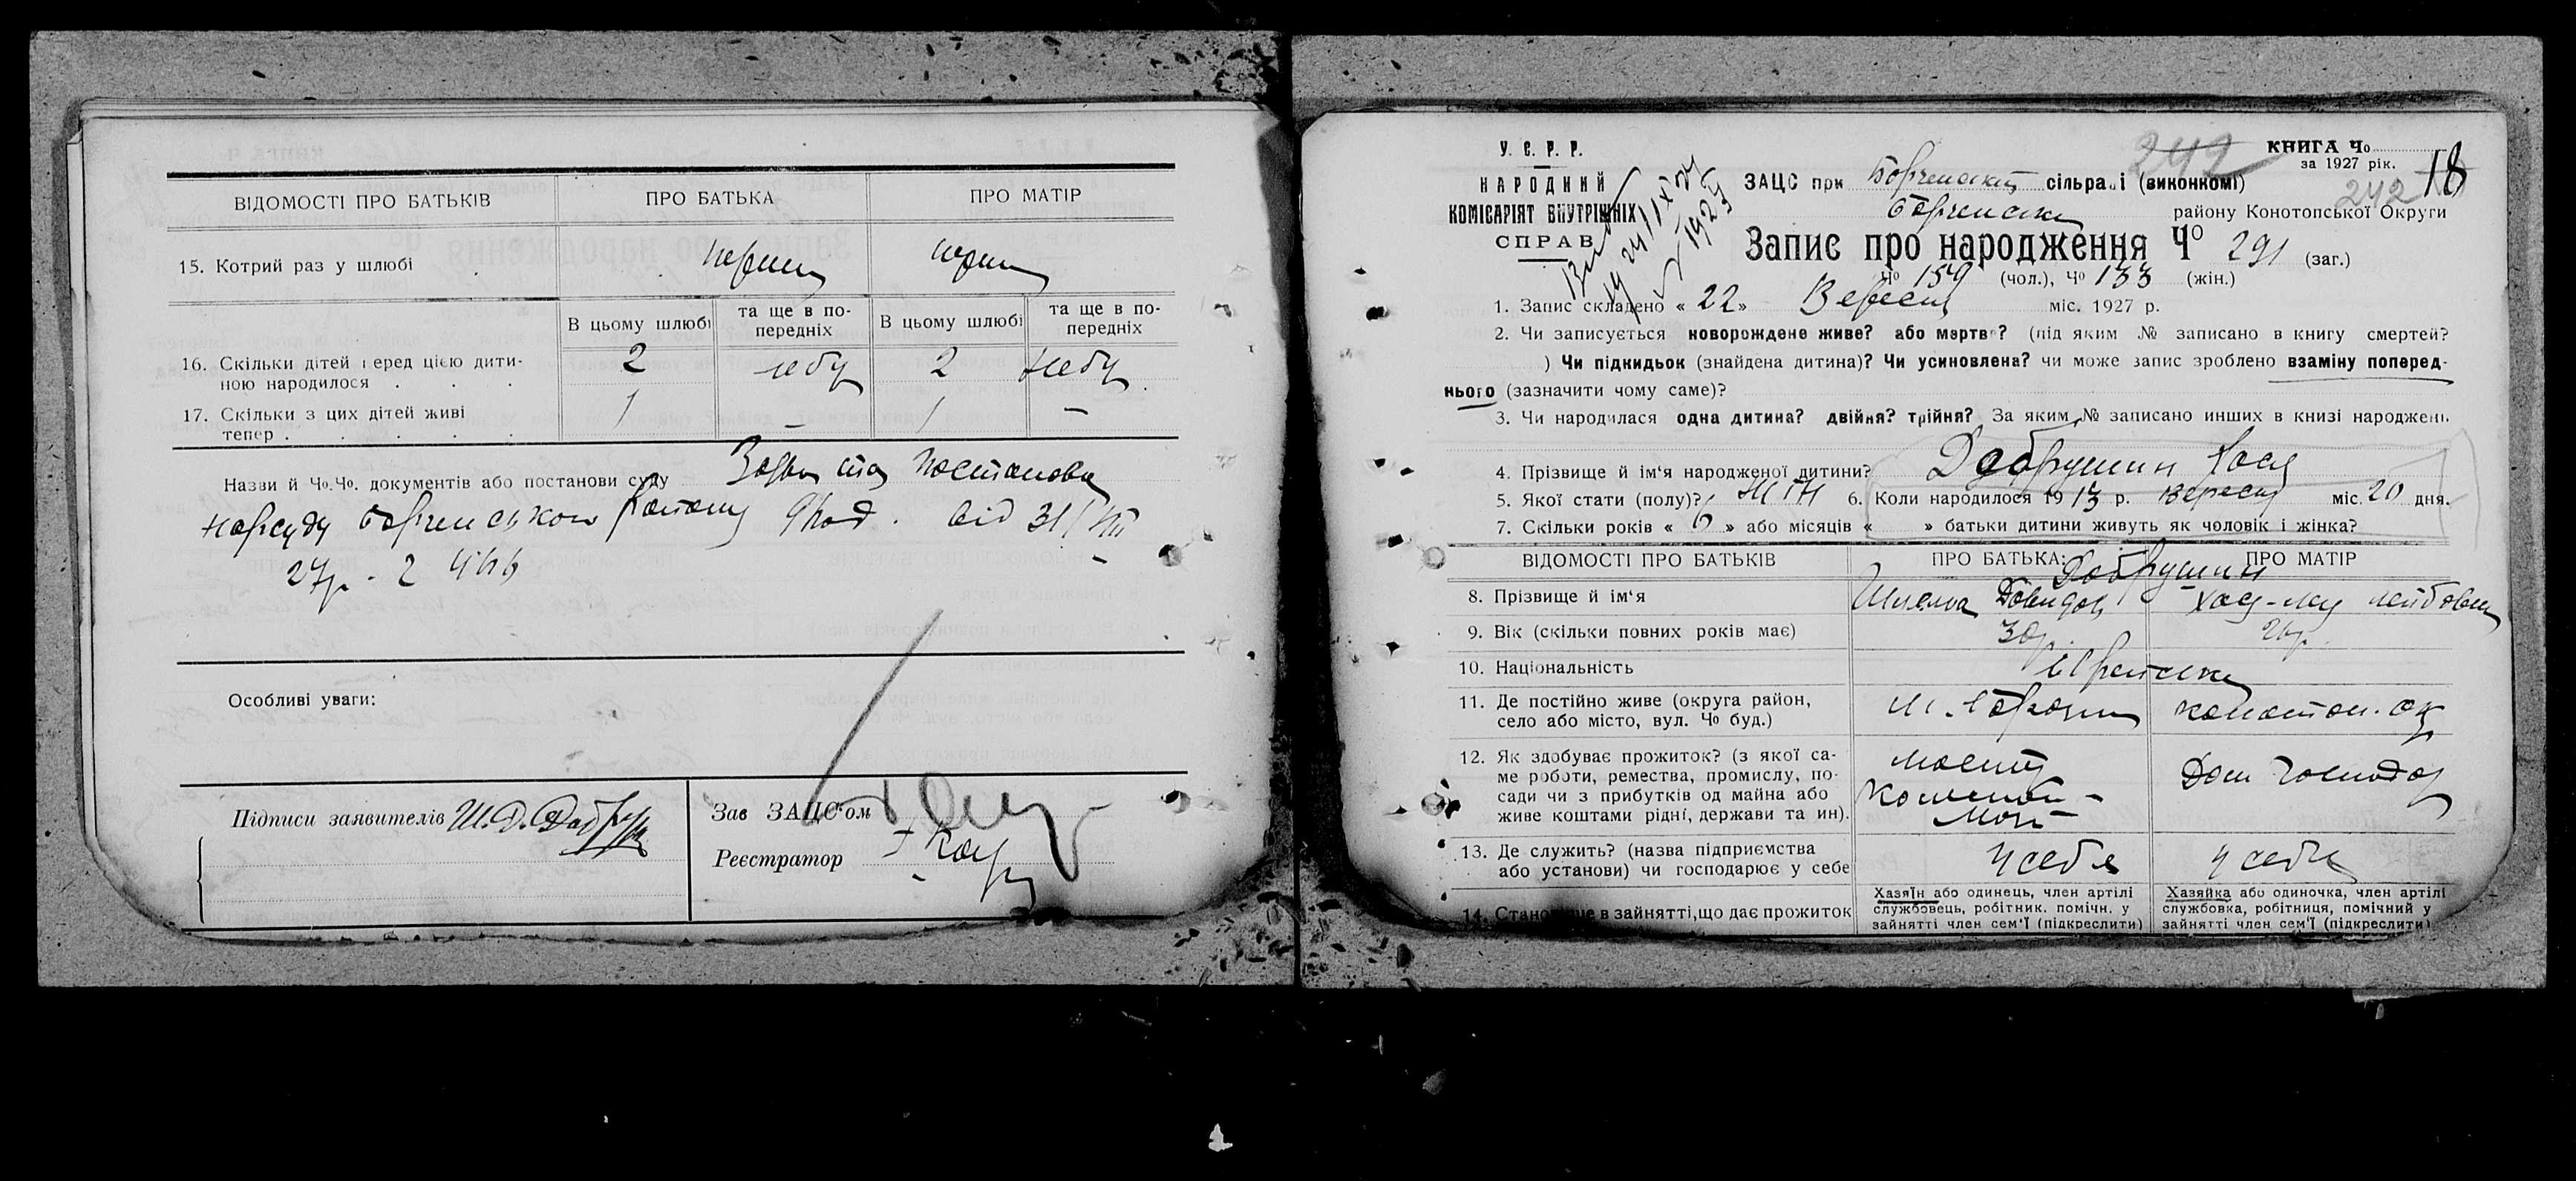 ВІДОМОСТІ ПРО БАТЬКІВ
ПРО БАТЬКА
ПРО МАТІР
15. Котрий раз у шлюбі
перший
перший
В цьому шлюбі
та ще в по-
передніх
В цьому шлюбі
та ще в по-
передніх
16. Скільки дітей перед цією дити-
ною народилося . . .
2
небу
2
небу
17. Скільки з цих дітей живі
тепер . . . . .
1
—
1
—
Назви й Чо.Чо. документів або постанови суду Заява та постанова
нарсуду Борзенського району від 31/VIII
27р.
Особливі уваги:
Підписи заявителів Ш.Д.Добру
Зав ЗАЦС'ом
Реєстратор
У. С. Р. Р.
НАРОДНИЙ
КОМІСАРІЯТ ВНУТРІШНІХ
СПРАВ
242
КНИГА Чо
за 1927 рік.
18
242
ЗАЦС при Борзенській сільраді (виконкомі)
Борзенськ району Конотопської Округи
Запис про народження Чо 291 (заг.)
Чо 159 (чол.), Чо 133 (жін.)
1. Запис складено « 22 » Вересня міс. 1927 р.
2. Чи записується новорождене живе? або мертве? (під яким № записано в книгу смертей?
) Чи підкидьок (знайдена дитина)? Чи усиновлена? чи може запис зроблено взаміну поперед-
нього (зазначити чому саме)?
3. Чи народилася одна дитина? двійня? трійня? За яким № записано инших в книзі народжень
4. Прізвище й ім'я народженої дитини? Добрушин Хася
5. Якої стати (полу)? жін 6. Коли народилося 1913 р. вересня міс. 20 дня.
7. Скільки років « 6 » або місяців « » батьки дитини живуть як чоловік і жінка?
ВІДОМОСТІ ПРО БАТЬКІВ
ПРО БАТЬКА:
ПРО МАТІР
Добрушин
8. Прізвище й ім'я
Шлема Давидов
Лейбовна
9. Вік (скільки повних років має)
30р.
26р.
10. Національність
Єврейська
11. Де постійно живе (округа район,
село або місто, вул. Чо буд.)
м. Борзни
конотоп. ок
12. Як здобуває прожиток? (з якої са-
ме роботи, ремества, промислу, по-
сади чи з прибутків од майна або
живе коштами рідні, держави та ин).
Дом господар
13. Де служить? (назва підприємства
або установи) чи господарює у себе
у себе
у себе
14. Становище в зайнятті,що дає прожиток
Хазяїн або одинець, член артілі
службовець, робітник. помічн. у
зайнятті член сем'ї (підкреслити)
Хазяйка або одиночка, член артілі
службовка, робітниця, помічний у
зайнятті член сем'ї (підкреслити)